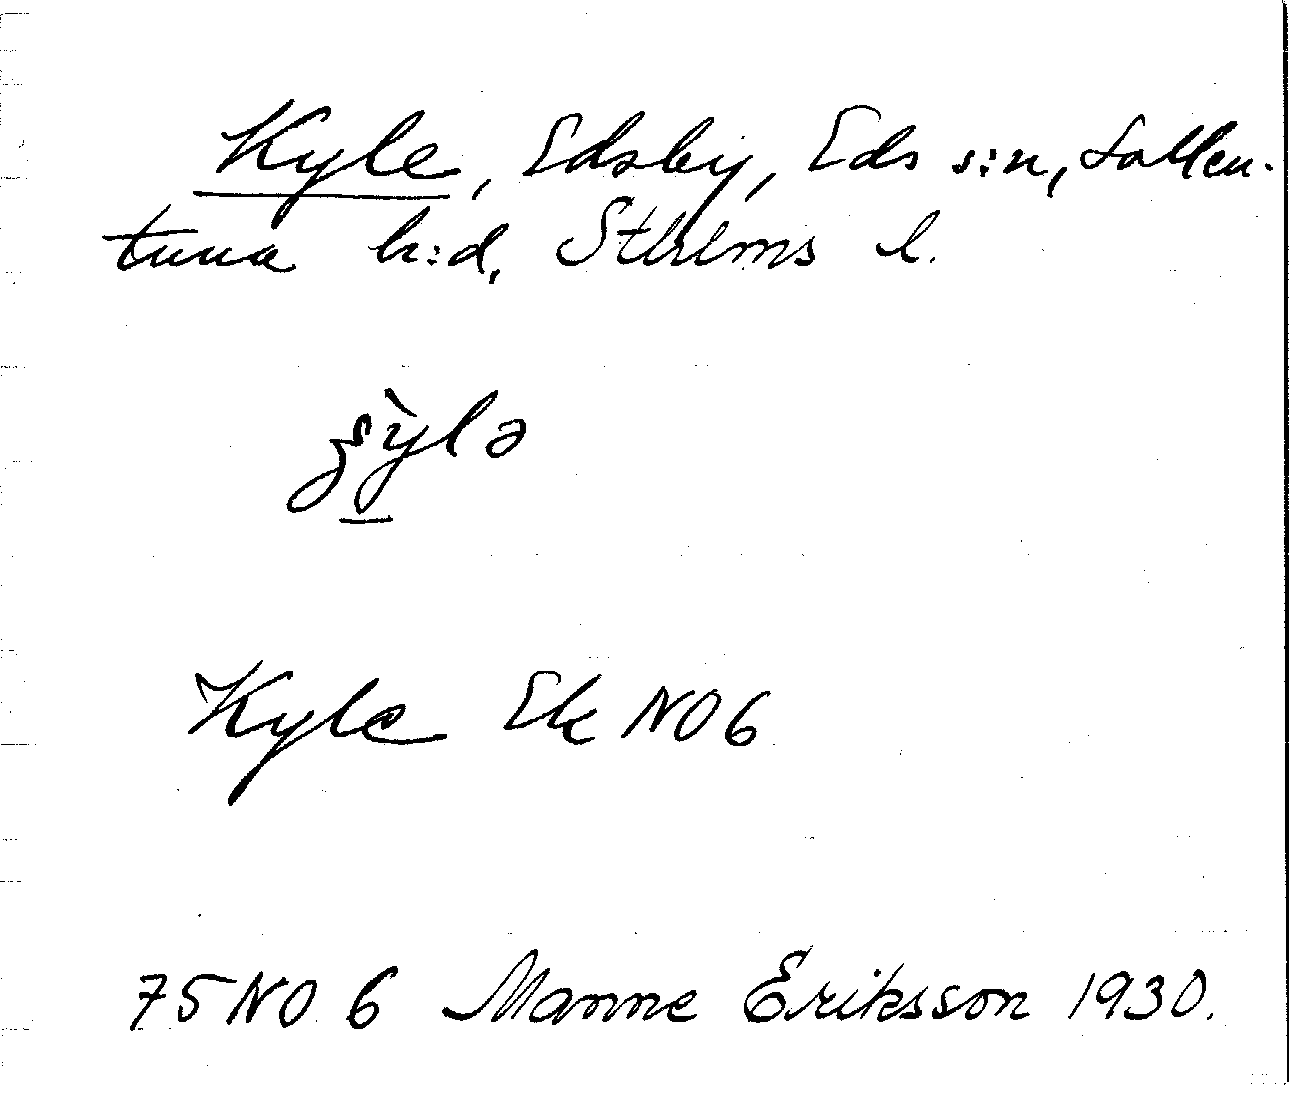 Kyle, Edsby, Eds s:n, Sollen-
tuna h:d, Sthlms l.
Kyle Ek NO 6
75 NO 6 Manne Eriksson 1930.